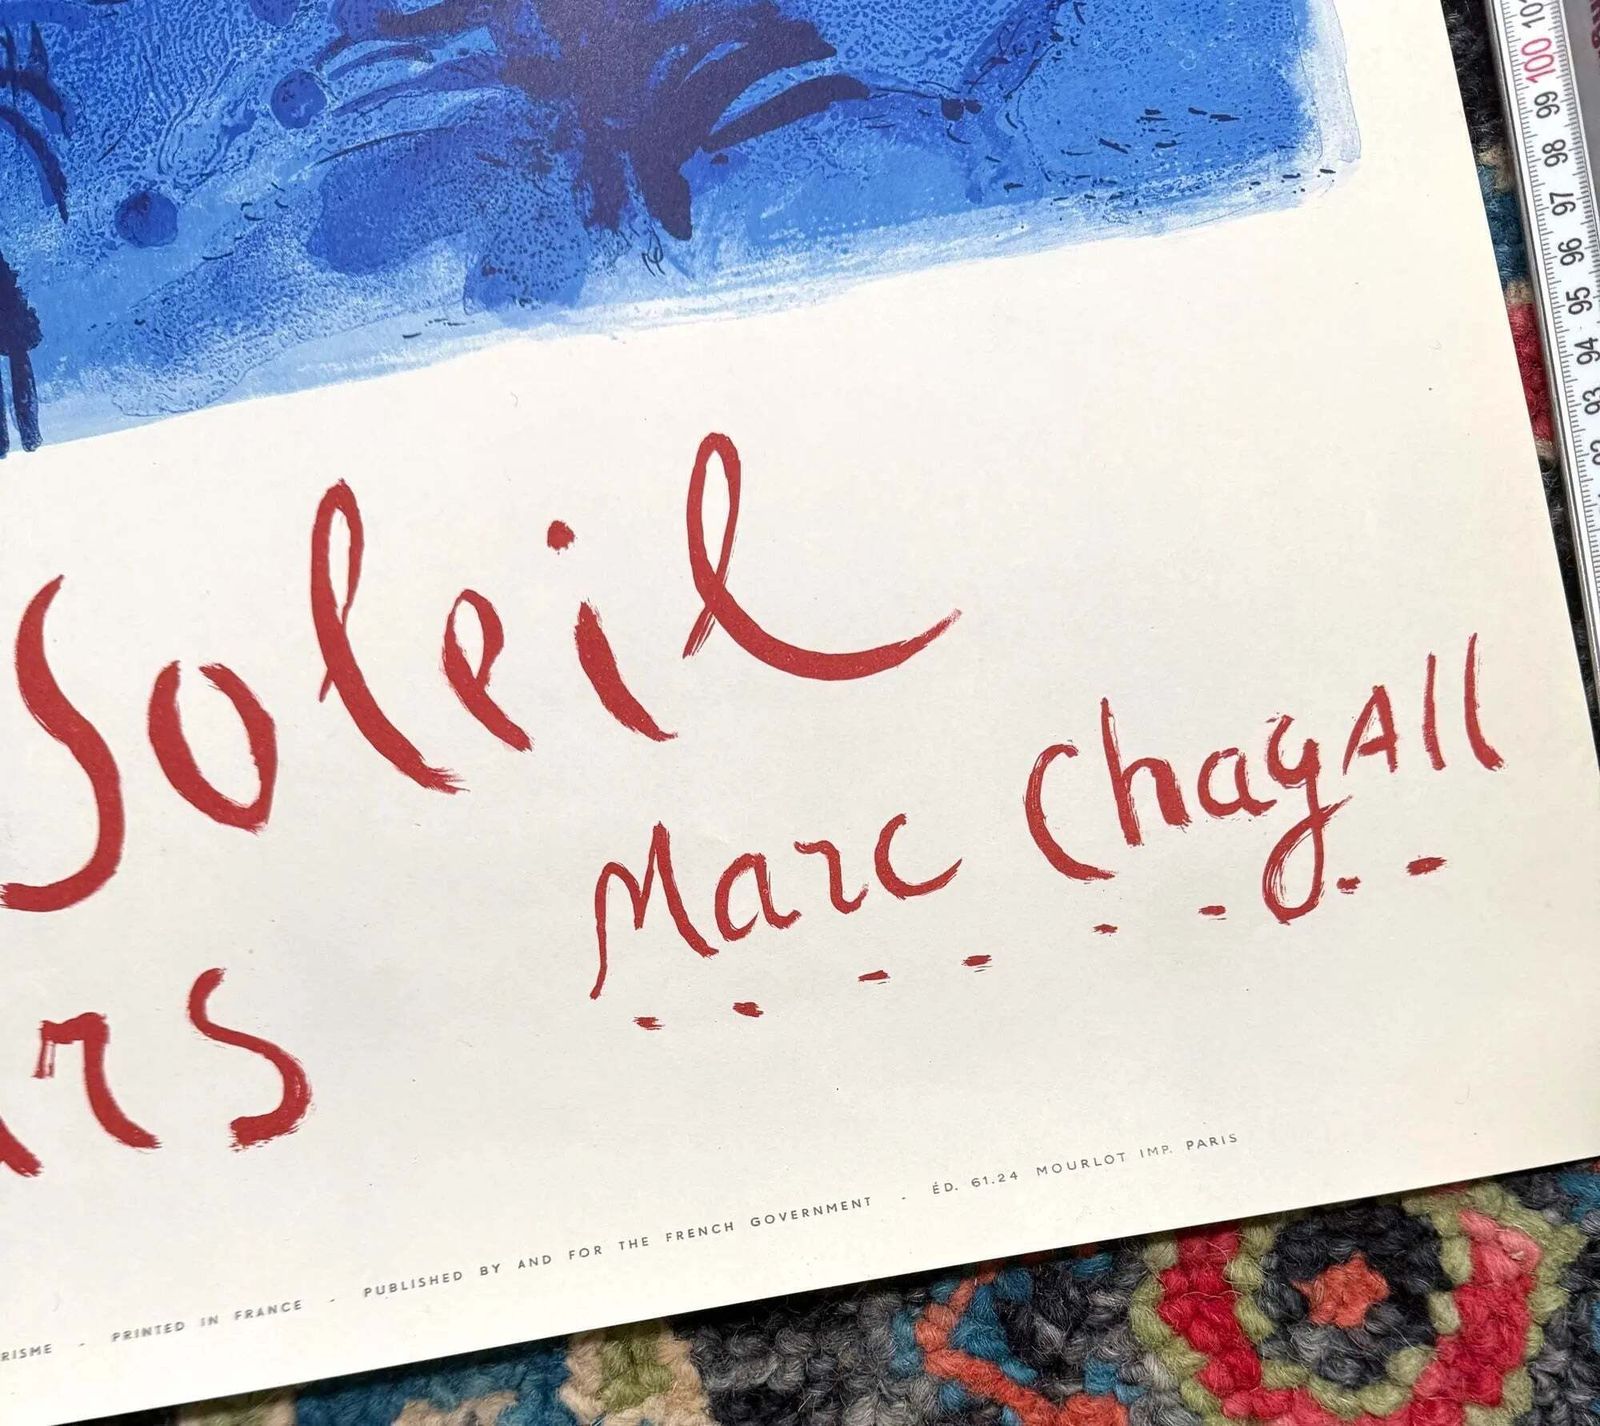 Soleil
Marc ChagAll
rs
RISME - PRINTED IN FRANCE - PUBLISHED BY AND FOR THE FRENCH GOVERNMENT - ÉD. 61.24 MOURLOT IMP. PARIS
101
100
99
98
97
96
95
94
93
92